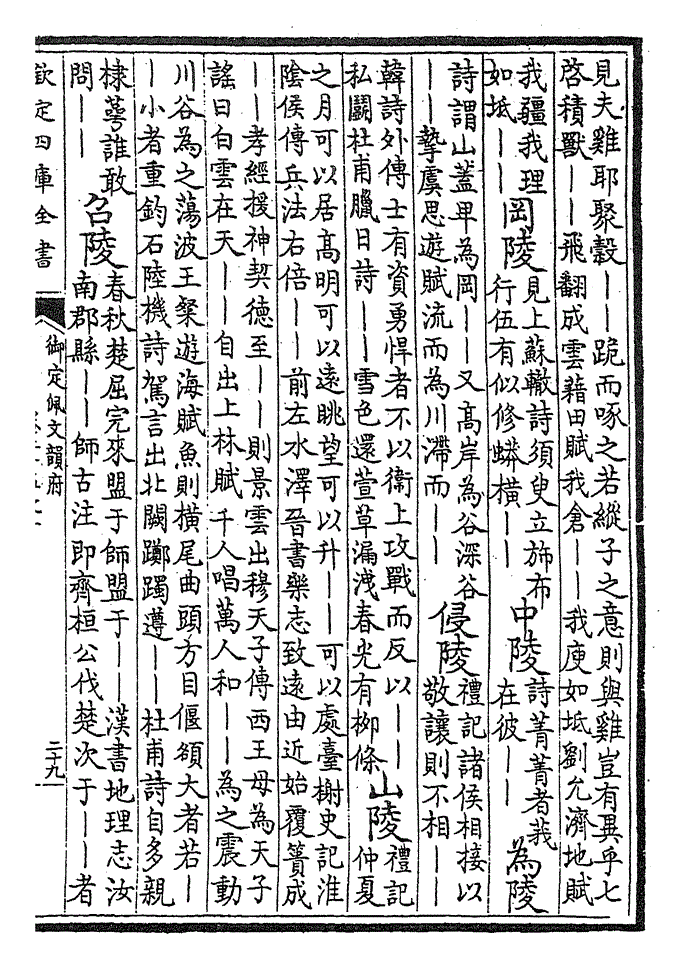 見夫雞耶聚縠｜｜跪而啄之若縱子之意則與雞豈有異乎七
啓積獸｜｜飛翻成雲藉田賦我倉｜｜我庾如坻劉允濟地賦
我疆我理
如坻｜｜
岡陵
見上蘇轍詩須臾立旆布
行伍有似修蟒橫｜｜
中陵
詩菁菁者莪
在彼｜｜
為陵
詩謂山蓋卑為岡｜｜又高岸為谷深谷
｜｜摯虞思遊賦流而為川滯而｜｜
侵陵
禮記諸侯相接以
敬讓則不相｜｜
韓詩外傳士有資勇悍者不以衛上攻戰而反以｜｜
私鬭杜甫臘日詩｜｜雪色還萱草漏洩春光有栁條
山陵
禮記
仲夏
之月可以居高明可以遠眺望可以升｜｜可以處臺榭史記淮
陰侯傳兵法右倍｜｜前左水澤晉書樂志致遠由近始覆簣成
｜｜孝經援神契德至｜｜則景雲出穆天子傳西王母為天子
謠曰白雲在天｜｜自出上林賦千人唱萬人和｜｜為之震動
川谷為之蕩波王粲遊海賦魚則橫尾曲頭方目偃額大者若｜
｜小者重鈞石陸機詩駕言出北闕躑躅遵｜｜杜甫詩自多親
棣萼誰敢
問｜｜
召陵
春秋楚屈完來盟于師盟于｜｜漢書地理志汝
南郡縣｜｜師古注即齊桓公伐楚次于｜｜者
欽定四庫全書
御定佩文韻府
二十九